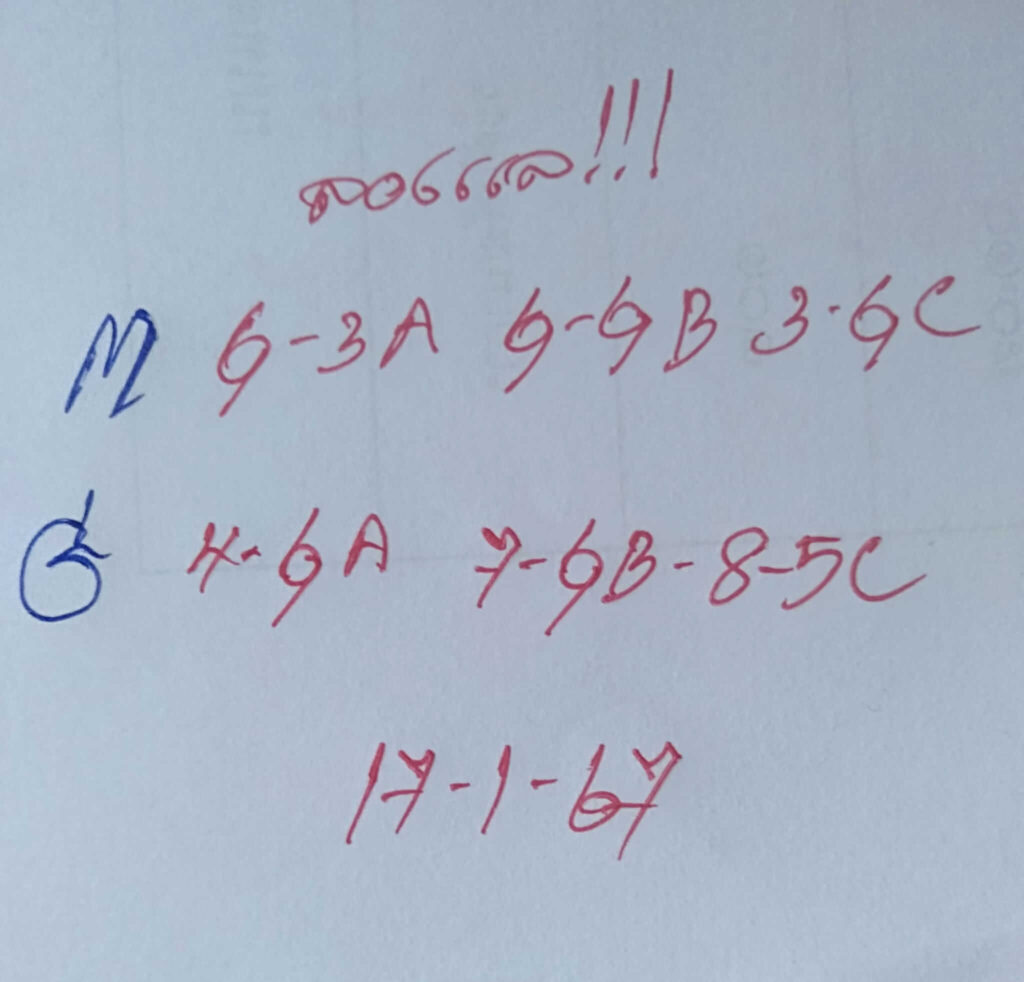 M 9-3A 9-9B 3-9C
4-9A 7-9B-8-5C
17-1-67